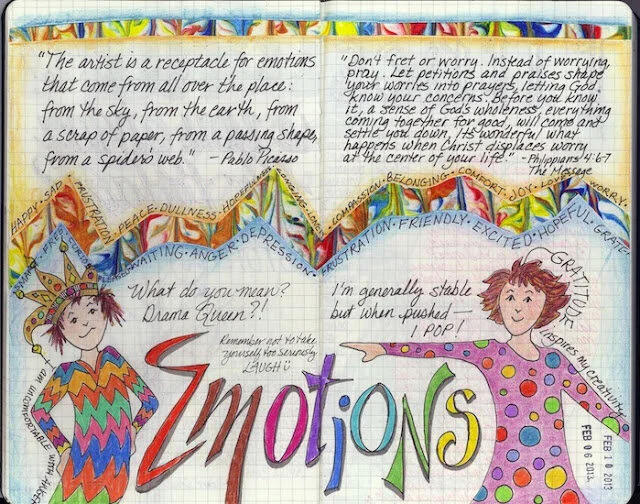 "The artist is a receptacle for emotions
that come from all over the place:
from the sky, from the earth, from
a scrap of paper, from a passing shape,
from a spider's web." - Pablo Picasso
"Don't fret or worry. Instead of worrying,
pray. Let petitions and praises shape
your worries into prayers, letting God
know your concerns. Before you know
it, a sense of God's wholeness, everything
coming together for good, will come and
settle you down. It's wonderful what
happens when Christ displaces worry
at the center of your life." - Philippians 4:6-7
The Message
HAPPY · SAD · FRUSTRATION · PEACE · DULLNESS · HOPEFULNESS
COMPASSION · BELONGING · COMFORT · JOY · WORRY
WAITING · ANGER · DEPRESSION · FRUSTRATION · FRIENDLY · EXCITED · HOPEFUL · GRATE
What do you mean?
Drama Queen?!
Remember not to take
yourself too seriously.
LAUGH
I'm generally stable
but when pushed —
I POP!
GRATITUDE
inspires my creativity
I am uncomfortable with anger
EMOTIONS
FEB 06 2013
FEB 10 2013